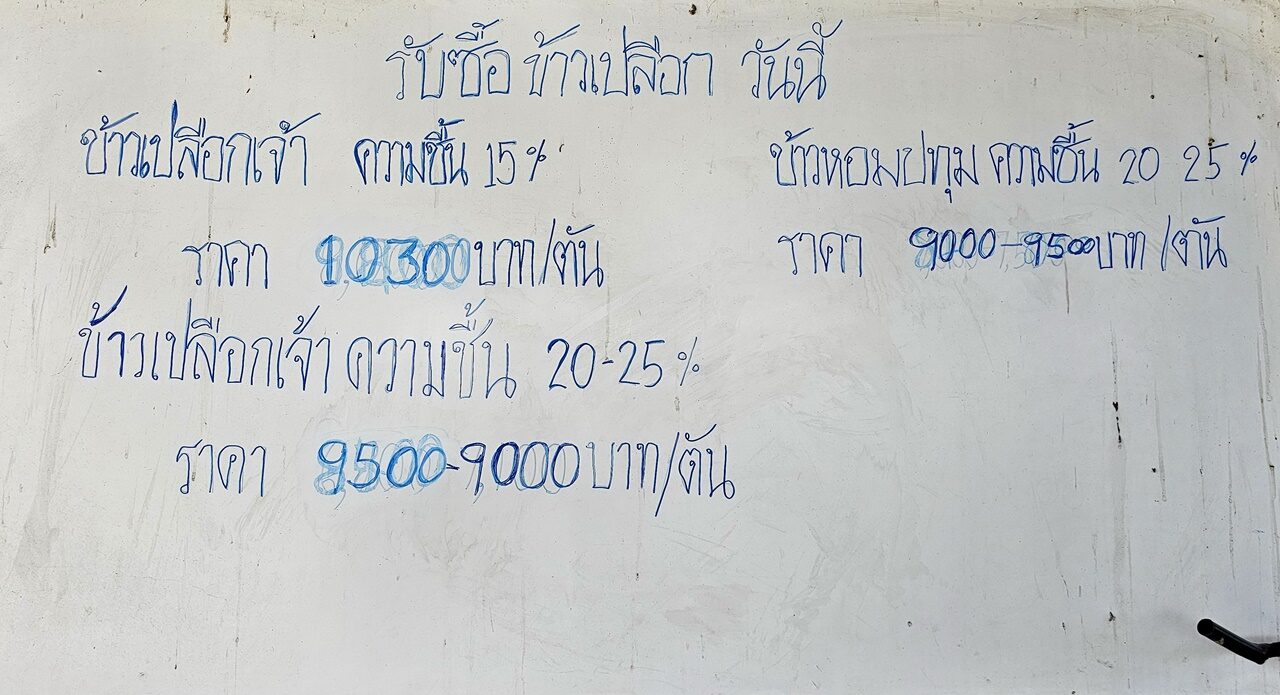 รับซื้อ ข้าวเปลือก วันนี้
ข้าวเปลือกเจ้า ความชื้น 15%
ราคา 10300 บาท/ตัน
ข้าวเปลือกเจ้า ความชื้น 20-25%
ราคา 9500-9000 บาท/ตัน
ข้าวหอมปทุม ความชื้น 20 25%
ราคา 9000-9500 บาท/ตัน